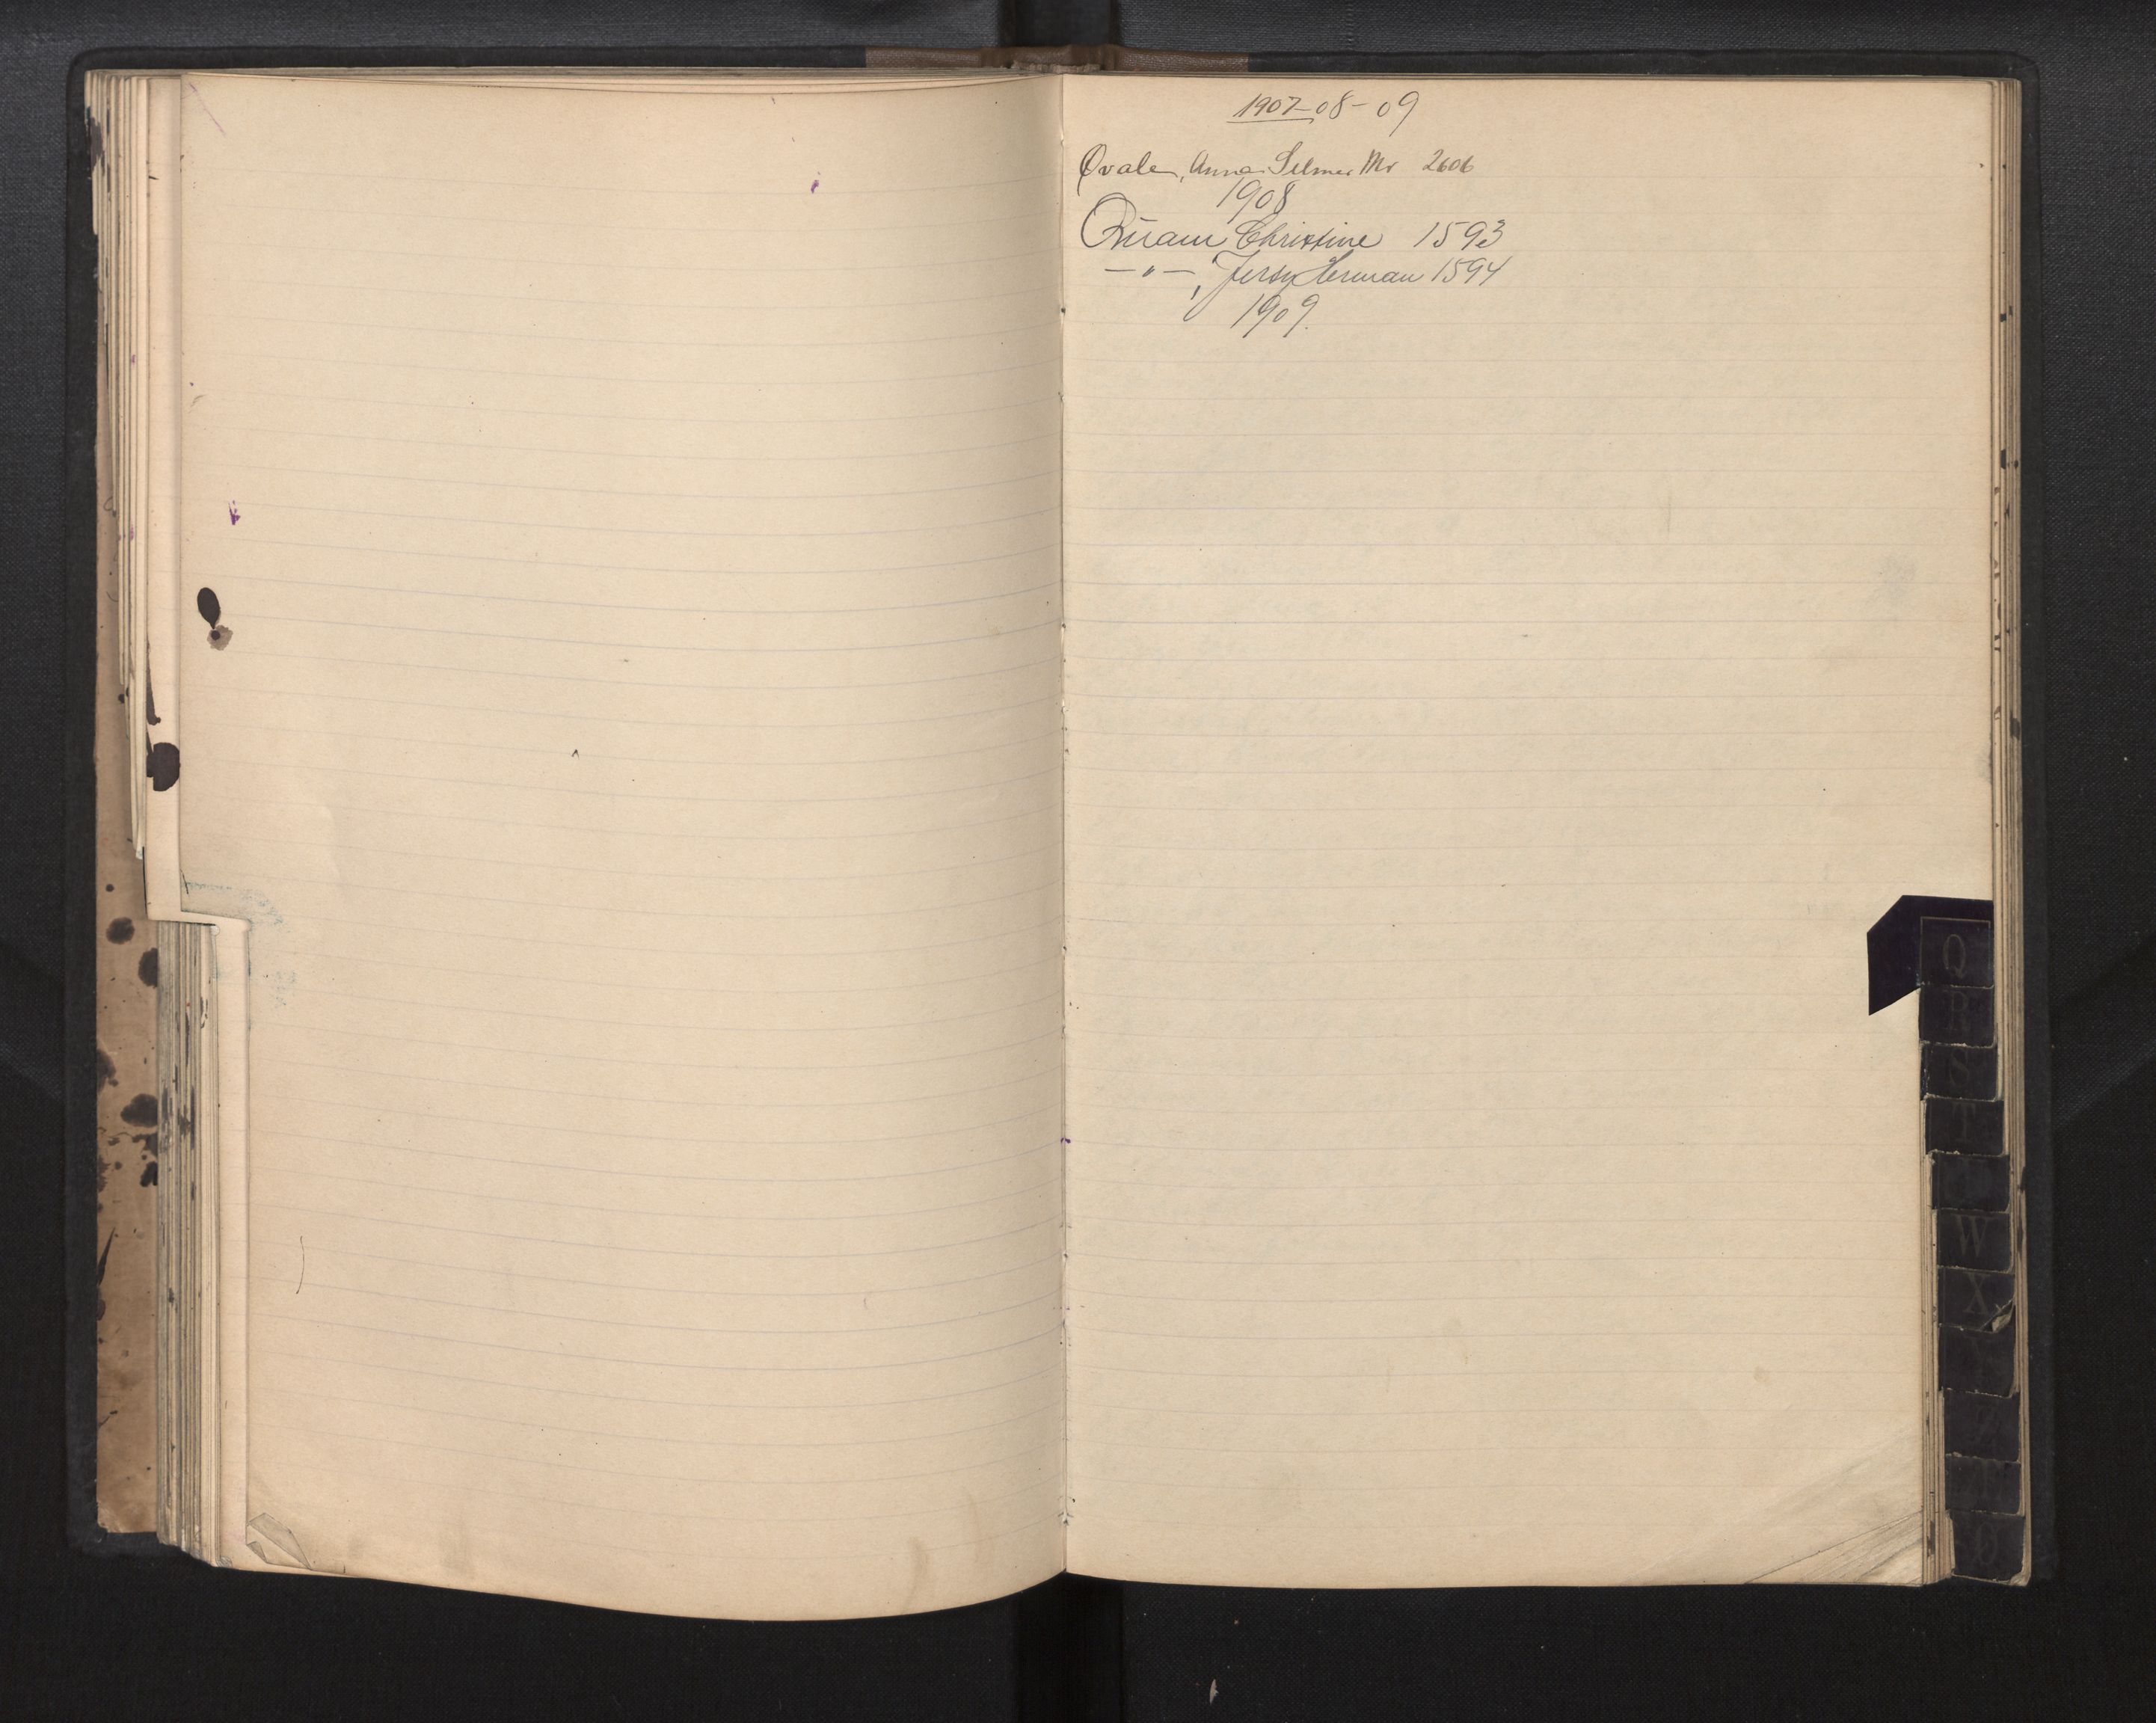 1907-08-09
Qvale, Anna Selmer Mr 2606
1908
Quam Christine 1593
—"—, Jersy Herman 1594
1909.
Q
R
S
T
W
X
Ø